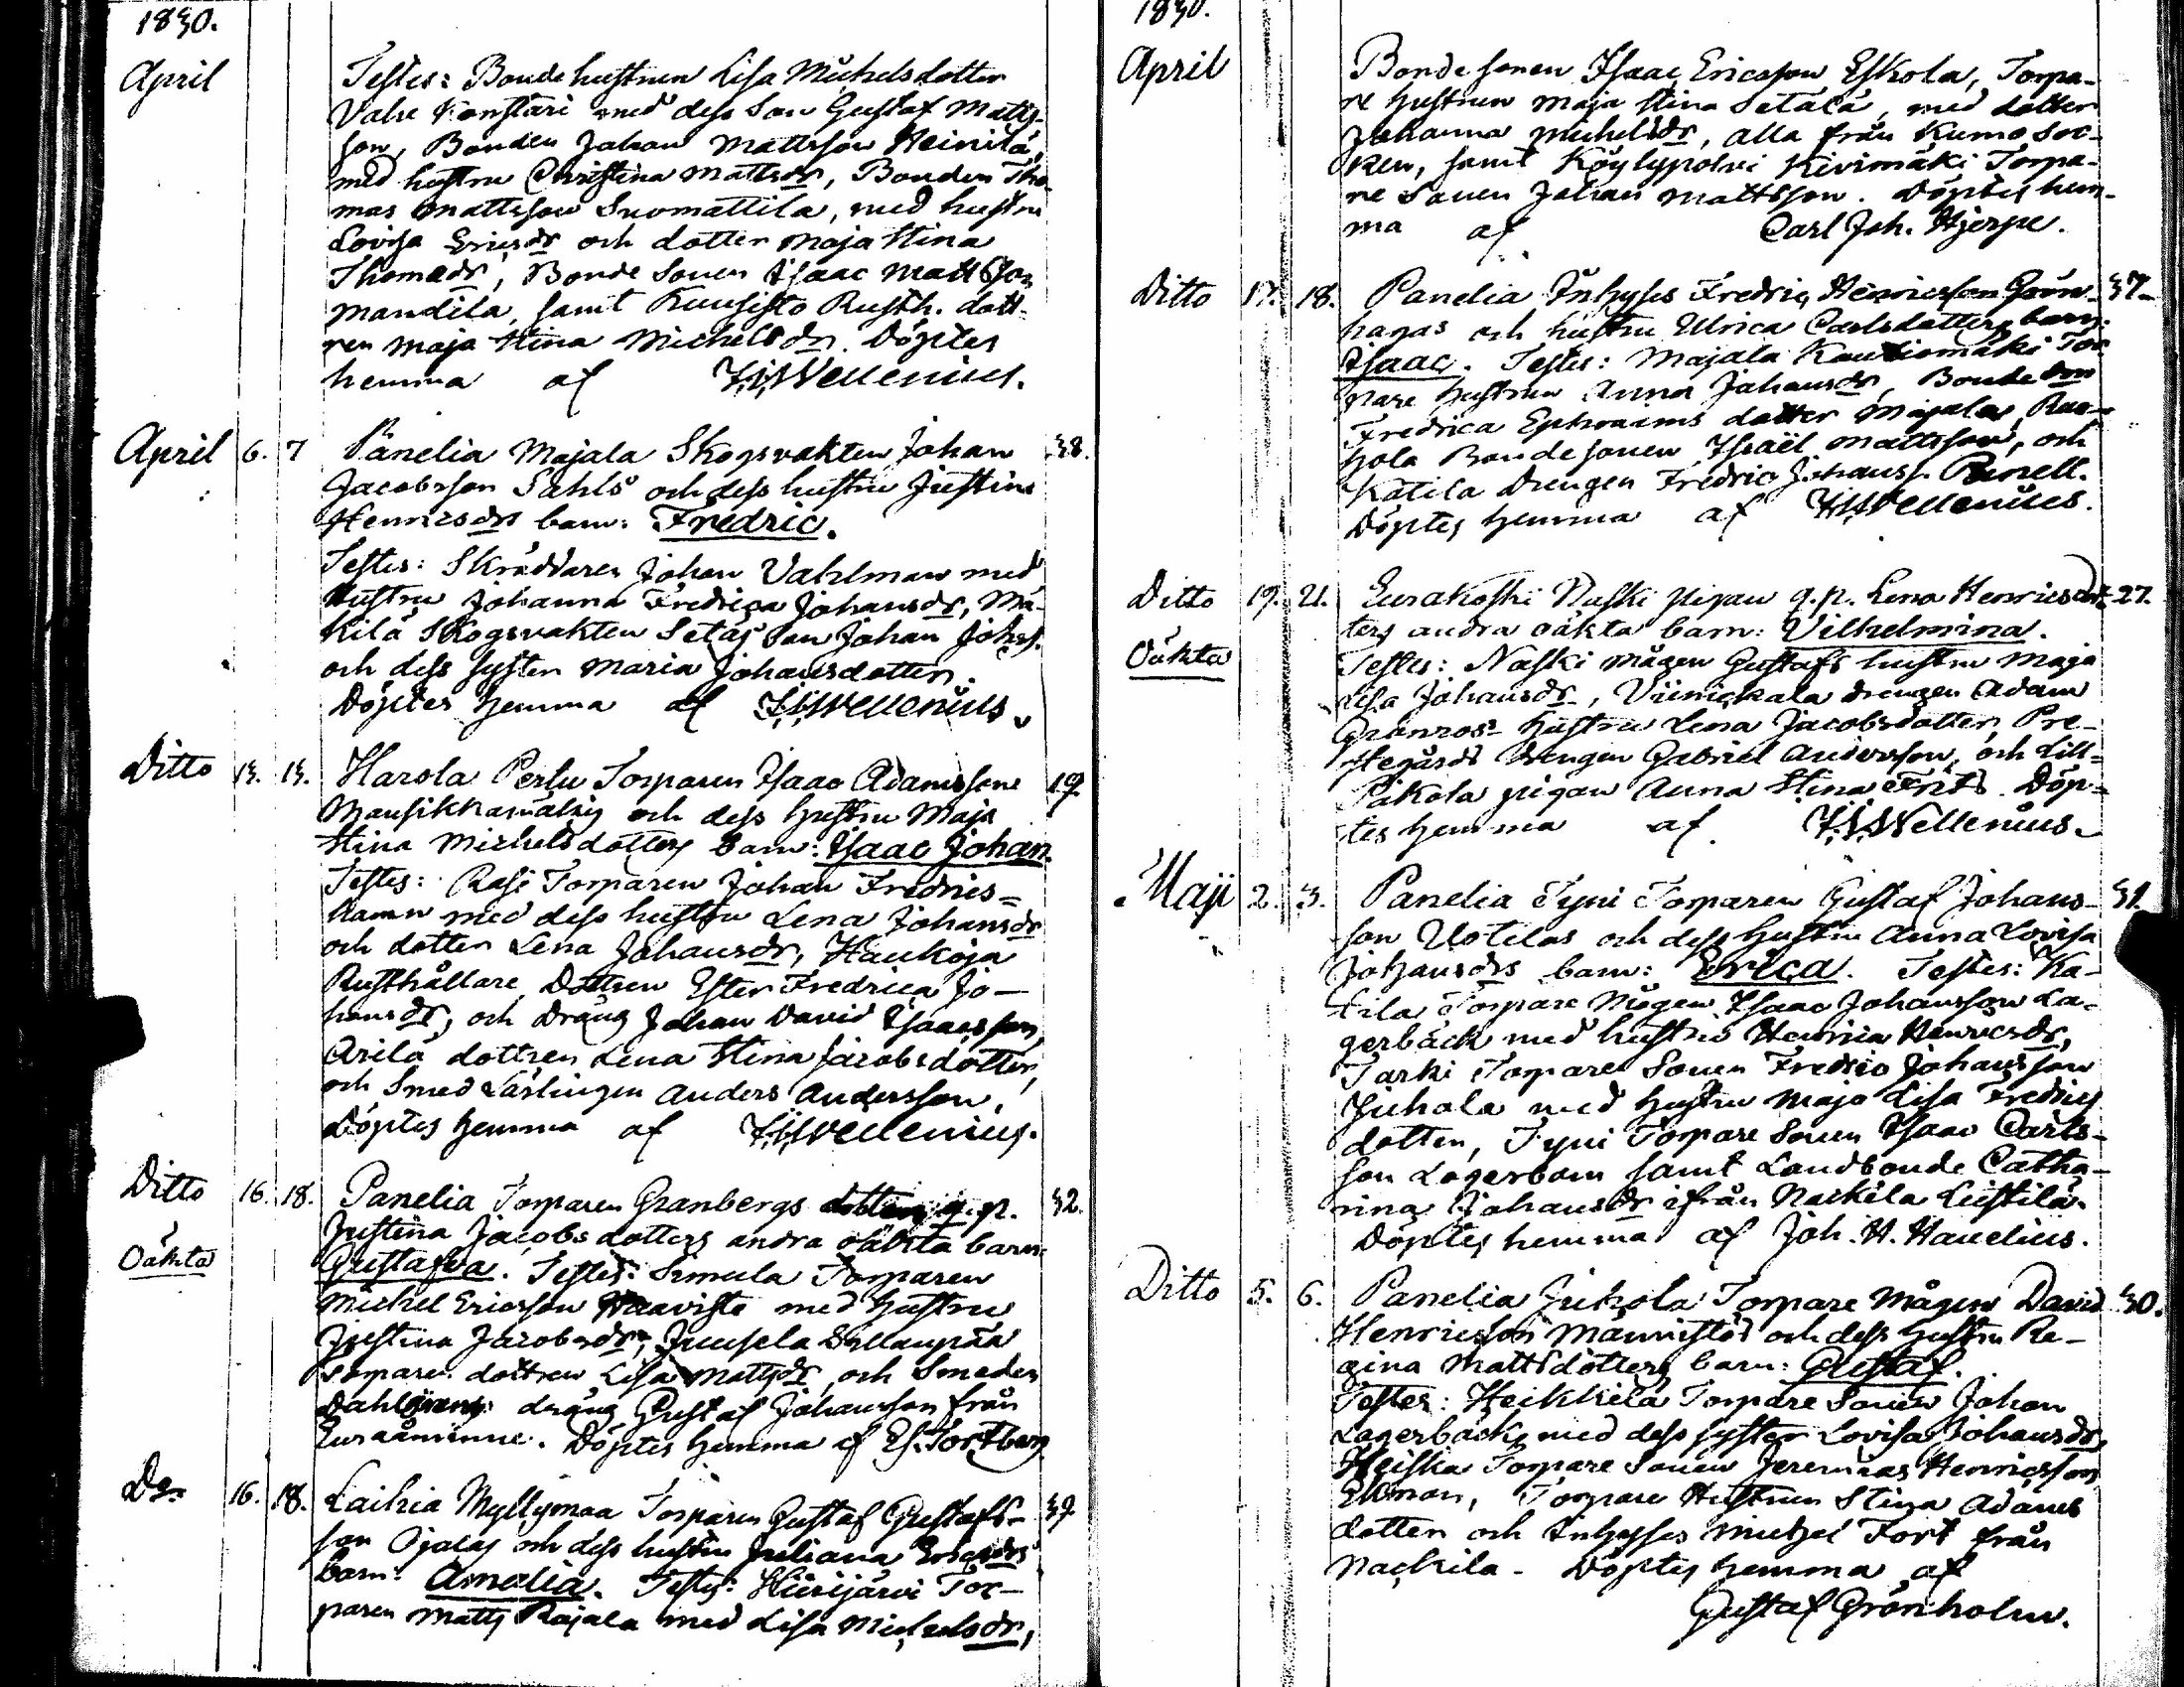 1830.
April
Testes: Bonde hustrun Lisa Michelsdotter
Valve Konstari med dess Son Gustaf Matts-
son, Bonden Johan Mattsson Heinilä,
med hustru Christina Mattsdr, Bonden Tho-
mas Mattsson Suomattila, med hustru
Lovisa Ericsdr och dotter Maja Stina
Thomædr, Bonde Sonen Isaac Mattsson
Mandila, samt Kuusisto Rusth. dott-
ren Maja Stina Michelsdr. Döptes
hemma af Wellenius.
April 6. 7 Panelia Majala Skogsvakten Johan 38.
Jacobsson Sahls och dess hustru Justina
Henricsdrs barn: Fredric.
Testes: Skräddaren Johan Vahlman med
Hustru Johanna Fredrica Johansdr, Mä-
kilä Skogsvakten Setäs Son Johan Johss.
och dess syster Maria Johansdotter.
Döptes hemma af Wellenius.
Ditto 13. 13. Harola Perlu Torparen Isaac Adamsson 19.
Mansikkamäkis och dess hustru Maja
Stina Michelsdotters barn: Isaac Johan.
Testes: Rasi Torparen Johan Fredrics=
hamn med dess hustru Lena Johansdr
och dotter Lena Johansdr, Haukoja
Rusthållare Dottren Ester Fredrica Jo-
hansdr, och Dräng Johan David Isaacsson,
Arilä dottren Lena Stina Jacobsdotter,
och Smed Lärlingen Anders Andersson.
Döptes hemma af Wellenius.
Ditto 16. 18. Panelia Torparen Granbergs dotters q.p. 32.
Oäkta Justina Jacobsdotters andra oäkta barn:
Gustafva. Testes: Simula Torparen
Michel Ericsson Haavisto med hustru
Justina Jacobsdr, Juusela
torpare dottren Lisa Mattsdr, och Smeden
dräng Gustaf Johansson från
Euraåminne. Döptes hemma af Es. Tortberg.
Do 16. 18. Laihia Myllymaa Torparen Gustaf Gustafs- 37.
son Ojalas och dess hustru Juliana Ericsdrs
barn: Amalia. Testes: Hiirijärvi Tor-
paren Matts Rajala med Lisa Michelsdr,
1830.
April
Bonde sonen Isaac Ericsson Eskola, Torpa-
re hustrun Maja Stina Setälä, med dotter
Johanna Michelsdr, alla från Kumo Soc-
ken, samt Köylypolvi Kivimäki Torpa-
re Sonen Johan Mattsson. Döptes hem-
ma af Carl Joh. Hjerpe.
Ditto 17. 18. Panelia Inhyses Fredric Henricsson Grön- 37.
hagas och hustru Ulrica Carlsdotters barn:
Isaac. Testes: Majala Tor-
pare hustrun Anna Johansdr, Bonde
Fredrica Ephraims dotter Majala,
Bonde sonen Israël Mattsson, och
Katila Drengen Fredric Johanss. Panell.
Döptes hemma af Wellenius.
Ditto 19. 21. Eurakoski Naski pigan q.p. Lena Henricsdot- 27.
Oäkta ters andra oäkta barn: Vilhelmina.
Testes: Naski Mågen Gustafs hustru Maja
Lisa Johansdr, Viinickala drengen Adam
Granros' hustru Lena Jacobsdotter, Pre-
stegårds Drengen Gabriel Andersson, och Lill=
Päkola pigan Anna Stina . Döp=
tes hemma af Wellenius.
Maji 2. 3. Panelia Tyni Torparen Gustaf Johans- 31.
son Uotilas och dess hustru Anna Lovisa
Johansdrs barn: Erica. Testes: Ka-
tila Torpare Mågen Isaac Johansson La-
gerbäck med hustru Henrica Henricsdr,
Tarki Torpare Sonen Fredric Johansson
Juhola med hustru Maja Lisa Fredrics
dotter, Tyni Torpare Sonen Isaac Carls-
son Lagerbom samt Landbonde Catha-
rina Johansdr ifrån Nackila Leistilä.
Döptes hemma af Joh. H. Hauelius.
Ditto 5. 6. Panelia Juhola Torpare Mågen David 30.
Henricsson Männistös och dess hustru Re-
gina Mattsdotters barn: Gustaf.
Testes: Heikkilä Torpare Sonen Johan
Lagerbäck med dess syster Lovisa Johansdr,
Heiska Torpare Sonen Jeremias Henricsson
Ekman, Torpare Hustrun Stina Adams
dotter och Inhyses Michel Fort från
Nackila. Döptes hemma af
Gustaf Grönholm.